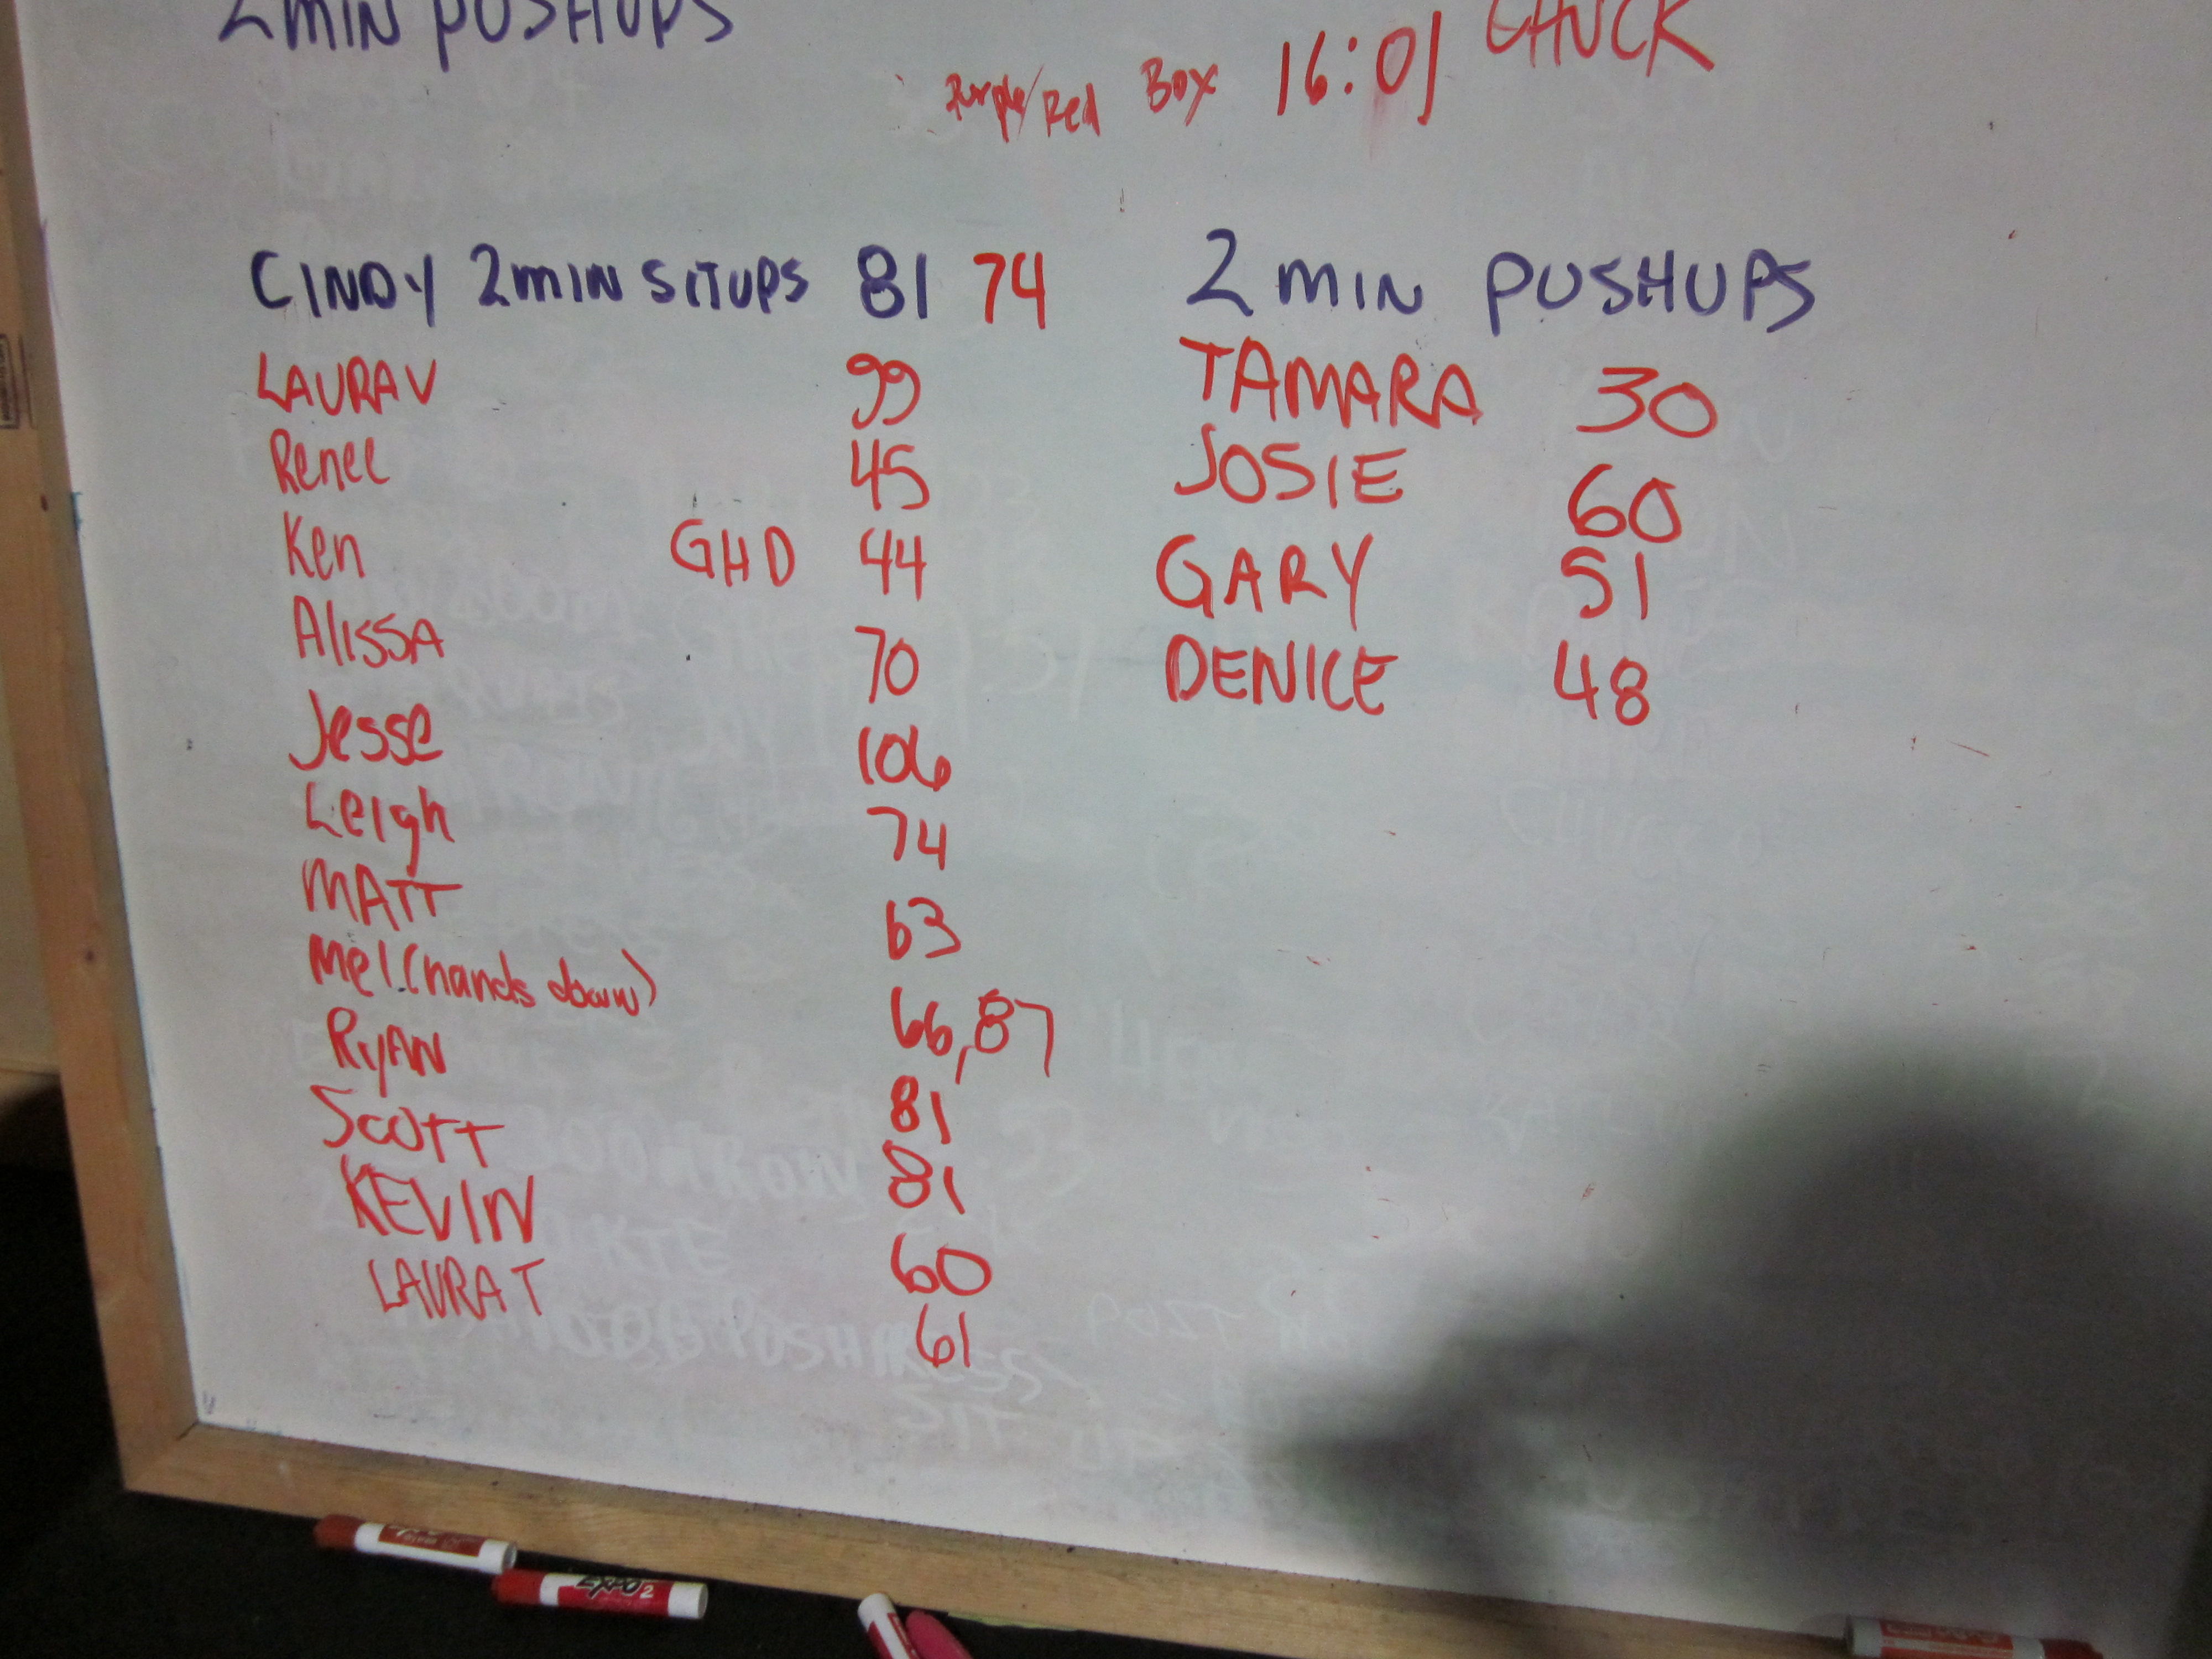 2 MIN PUSHUPS
CHUCK
Purple/Red Box 16:01
CINDY 2 MIN SITUPS 81 74
LAURA V 99
Renee 45
Ken GHD 44
Alissa 70
Jesse 106
Leigh 74
MATT 63
Mel (hands down) 66, 87
RYAN 81
SCOTT 81
KEVIN 60
LAURA T 61
2 MIN PUSHUPS
TAMARA 30
JOSIE 60
GARY 51
DENICE 48
EXPO 2